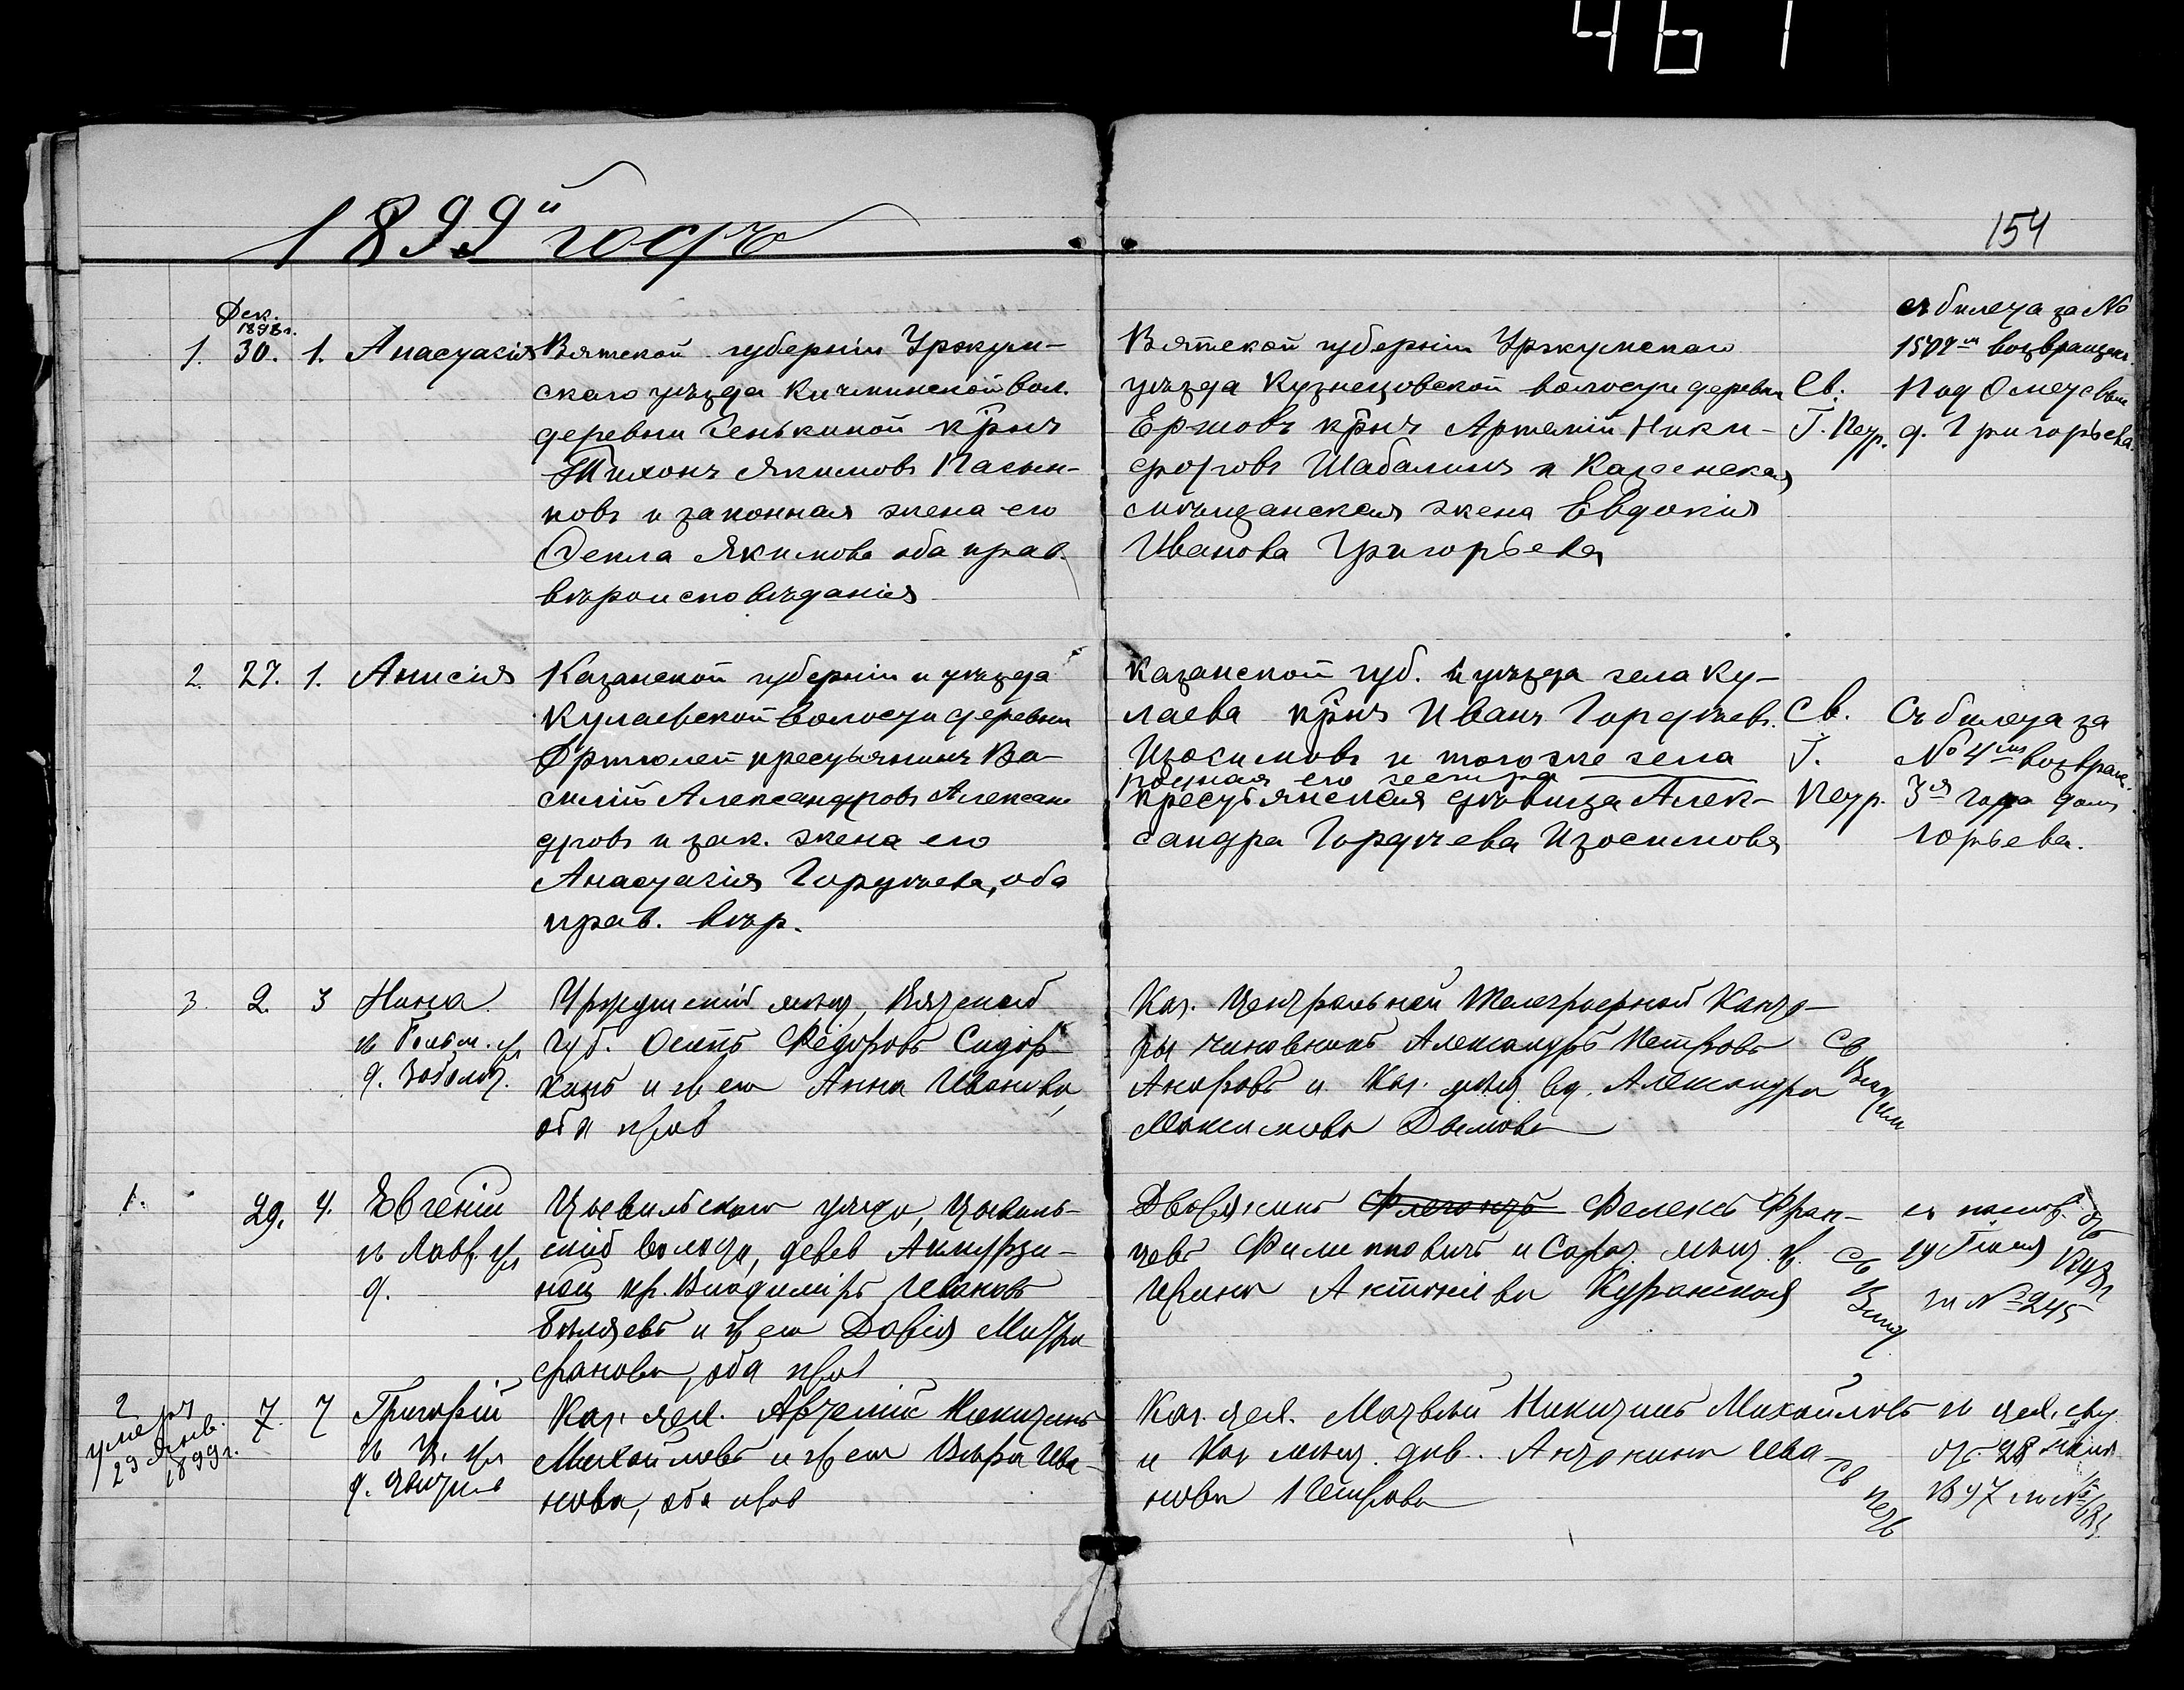 461
1899й годъ
154
Дек.
1898 г.
1. 30. 1. Анастасія
Вятской губерніи Уржум-
скаго уѣзда Кичминской вол.
деревни Сенькиной кр̃нъ
Тихонъ Якимовъ Пасын-
ковъ и законная жена его
Фекла Якимова оба прав.
вѣроисповѣданія
Вятской губерніи Уржумскаго
уѣзда Кузнецовской волости деревни
Ершовъ кр̃нъ Артемій Ники-
форовъ Шабалинъ и Казанская
мѣщанская жена Евдокія
Иванова Григорьева
Св.
Г. Петр.
съ билета за No
возвращен.
д. Григорьева.
2. 27. 1. Анисія
Казанской губерніи и уѣзда
Кулаевской волости деревни
крестьянинъ Ва-
силій Александровъ Алексан
дровъ и зак. жена его
Анастасія Гордѣева, оба
прав. вѣр.
Казанской губ. и уѣзда села Ку-
лаева кр̃нъ Иванъ Гордѣевъ
Изосимовъ и того же села
родная его сестра
крестьянская дѣвица Алек-
сандра Гордѣева Изосимова
Св.
Г.
Петр.
Съ билета за
No 4ым возвращ.
3я Гора домъ
Горьева.
3. 2. 3 Нина
н. Больш. ул
д. Заболот.
Уржумскій мѣщ, Вятской
губ. Осипъ Ѳедоровъ Сидор
кинъ и ж его Анна Иванова
оба прав
Каз. Центральной Телеграфной Канто-
ры чиновникъ Александръ Петровъ
и Каз. мѣщ. вд. Александра
Максимова Дымова
Св
1. 29. 4. Евгеній
н Лавр. ул
д.
Цывильскаго уѣзда, Цывиль-
ской волости, дерев
кр. Владиміръ Ивановъ
Бѣляевъ и ж его Дарія Митро
фанова, оба прав
Дворянинъ Феликсъ Фран-
цевъ Филипповичъ и мѣщ. ж.
Ирина Антоніева
Св
за No 245
2 7. 7 Григорій
умеръ
29 Янв.
1899 г.
Каз. цех. Артемій Никитинъ
Михайловъ и ж его Вѣра Ива-
нова, оба прав
Каз. цех. Матвѣй Никитинъ Михайловъ
и Каз мѣщ. дѣв. Антонина Ива
нова Петрова
Св
Петр